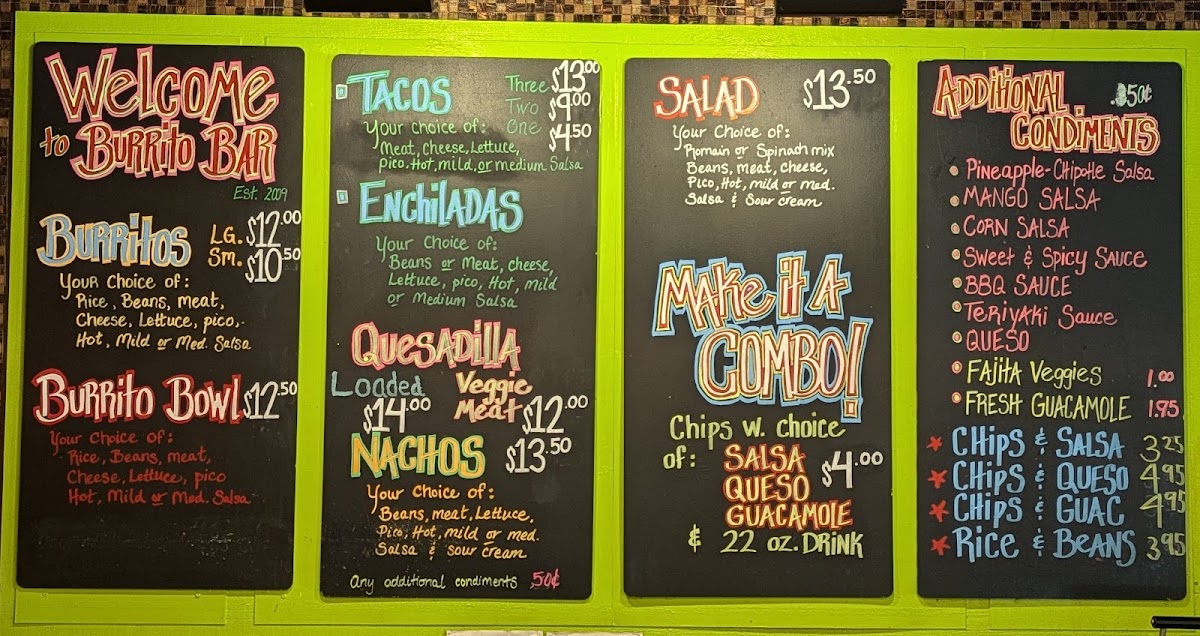 Welcome
to Burrito Bar
Est. 2009
Burritos LG. $12.00
Sm. $10.50
Your Choice of:
Rice, Beans, meat,
Cheese, Lettuce, pico,
Hot, Mild or Med. Salsa
Burrito Bowl $12.50
Your Choice of:
Rice, Beans, meat,
Cheese, Lettuce, pico
Hot, Mild or Med. Salsa
Tacos Three $13.00
Two $9.00
Your Choice of: One $4.50
Meat, Cheese, Lettuce,
pico, Hot, mild, or medium Salsa
Enchiladas
Your Choice of:
Beans or Meat, cheese,
Lettuce, pico, Hot, Mild
or Medium Salsa
Quesadilla
Loaded Veggie
$14.00 Meat $12.00
Nachos $13.50
Your Choice of:
Beans, meat, Lettuce,
Pico, Hot, mild or med.
Salsa & sour cream
Any additional condiments .50¢
Salad $13.50
Your Choice of:
Romain or Spinach mix
Beans, meat, cheese,
Pico, Hot, mild or med.
Salsa & Sour cream
Make it A
Combo!
Chips w. choice
of: Salsa $4.00
Queso
Guacamole
& 22 oz. Drink
Additional .50¢
Condiments
Pineapple-Chipotle Salsa
Mango Salsa
Corn Salsa
Sweet & Spicy Sauce
BBQ Sauce
Teriyaki Sauce
Queso
Fajita Veggies 1.00
Fresh Guacamole 1.95
Chips & Salsa 3.25
Chips & Queso 4.95
Chips & Guac 4.95
Rice & Beans 3.95